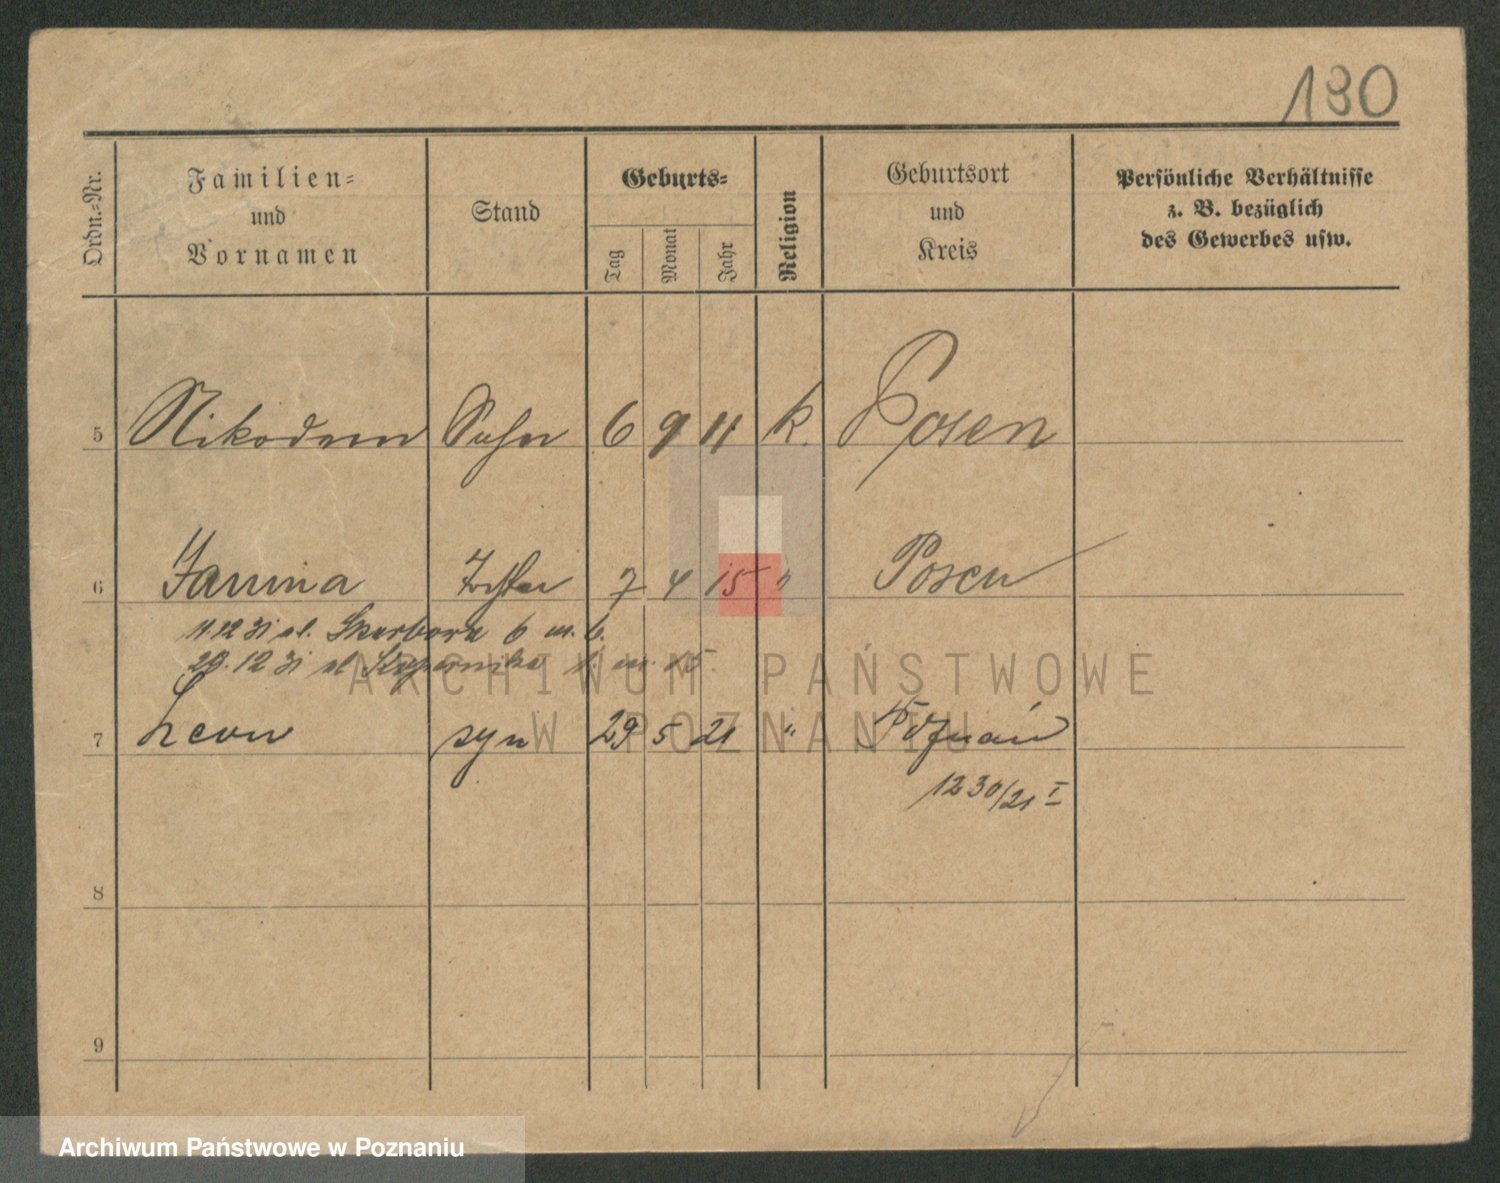 190
Ordn.-Nr.
Familien-
und
Vornamen
Stand
Geburts-
Tag
Monat
Jahr
Religion
Geburtsort
und
Kreis
Persönliche Verhältnisse
z. B. bezüglich
des Gewerbes usw.
5 Nikodem Sohn 6 9 11 k. Posen
6 Janina Tochter 7 4 15 " Posen
11 12 31 ul. Skarbowa 6 m. 6.
12 31 ul Kopernika m. 15
7 Leon syn 29 5 21 " Poznań
1230/21 I
8
9
ARCHIWUM PAŃSTWOWE
W POZNANIU
Archiwum Państwowe w Poznaniu